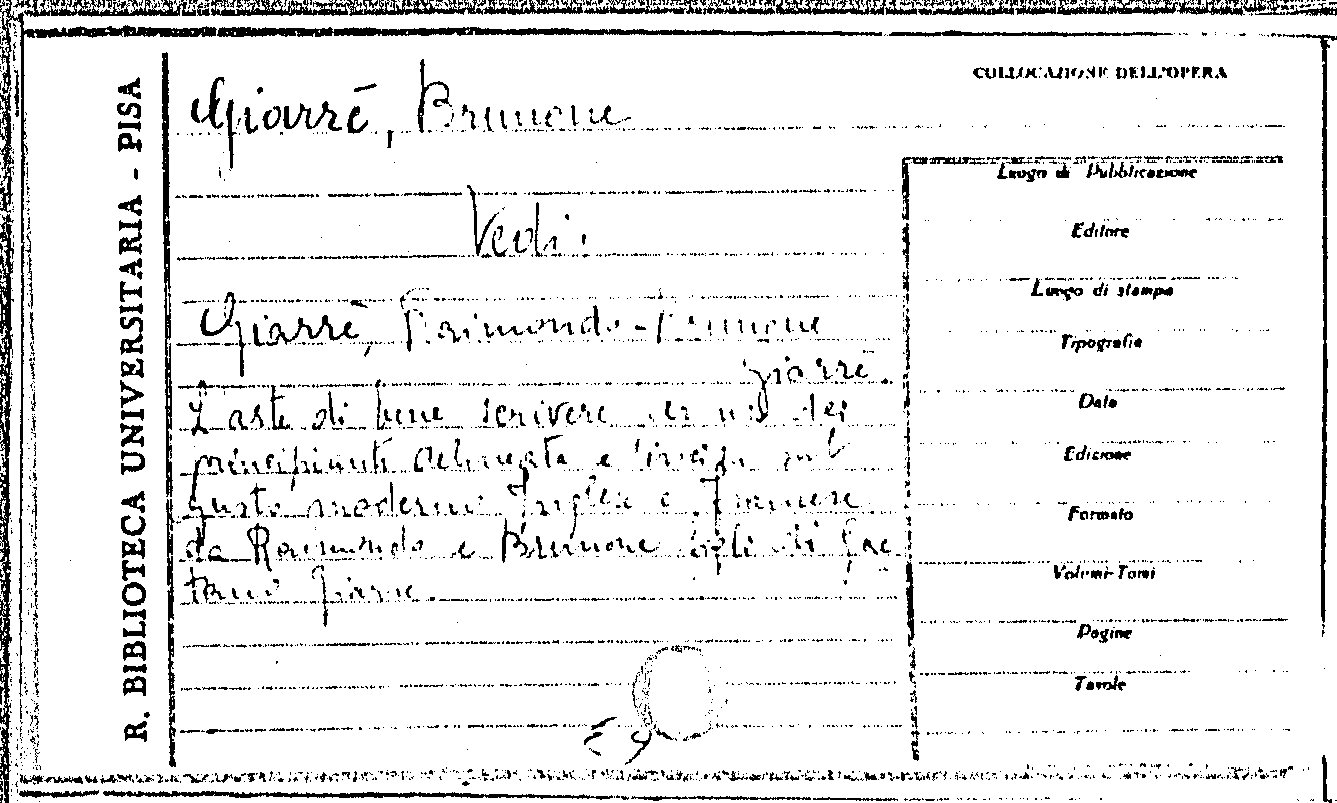 R. BIBLIOTECA UNIVERSITARIA - PISA
COLLOCAZIONE DELL'OPERA
Giarrè, Brunone
Vedi:
Giarrè, Raimondo - Brunone
Giarrè.
L'arte di bene scrivere ad uso dei
principianti delineata e incisa sul
gusto moderno Inglese e Francese
da Raimondo e Brunone figli di Gae
tano Giarrè.
Luogo di Pubblicazione
Editore
Luogo di stampa
Tipografia
Data
Edizione
Formato
Volumi-Tomi
Pagine
Tavole